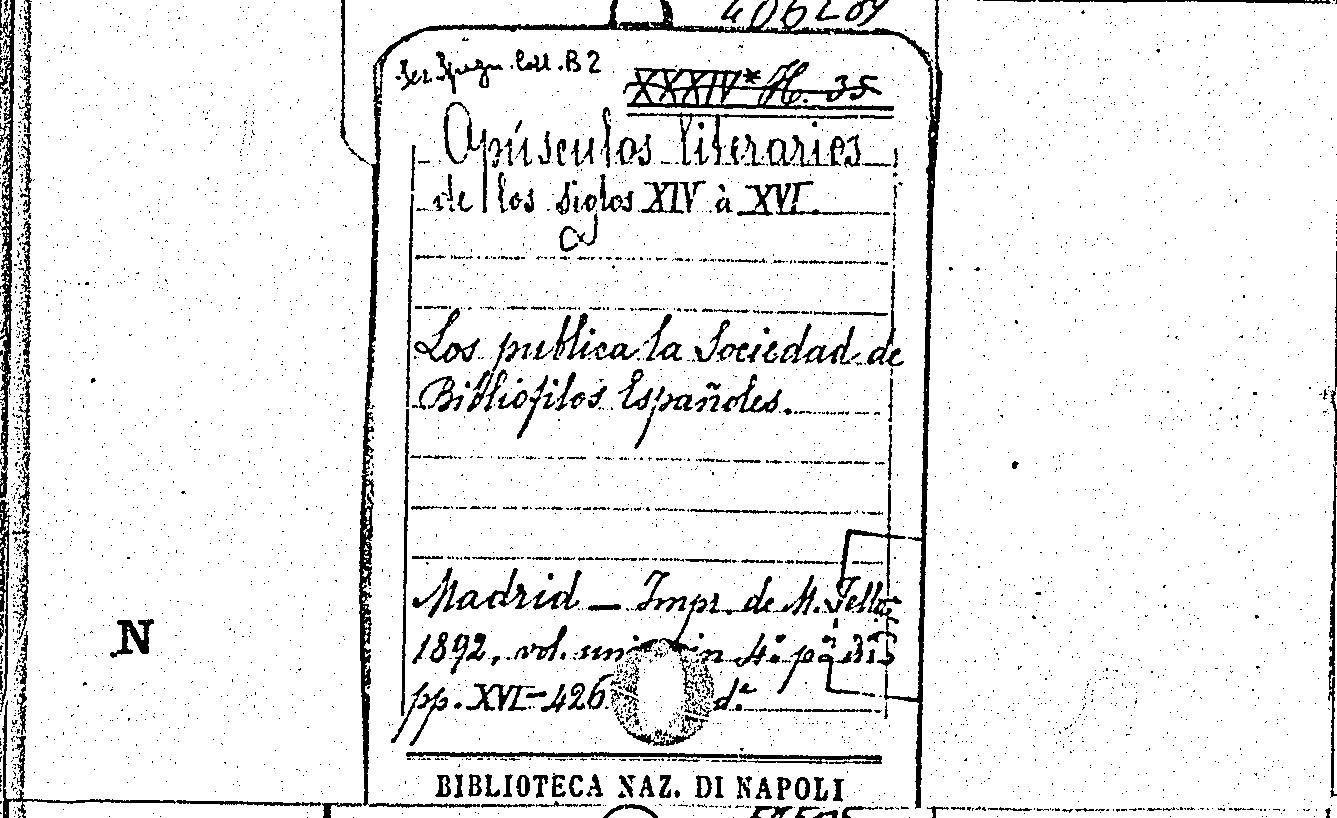 406209
Ser. Spagn. Coll. B 2
XXXIV* H. 35
Opúsculos literarios
de los siglos XIV à XVI.
Los publica la Sociedad de
Bibliófilos Españoles.
Madrid — Impr. de M. Tello
1892, vol. in 4.º
pp. XVI-426 d.ª
N
BIBLIOTECA NAZ. DI NAPOLI